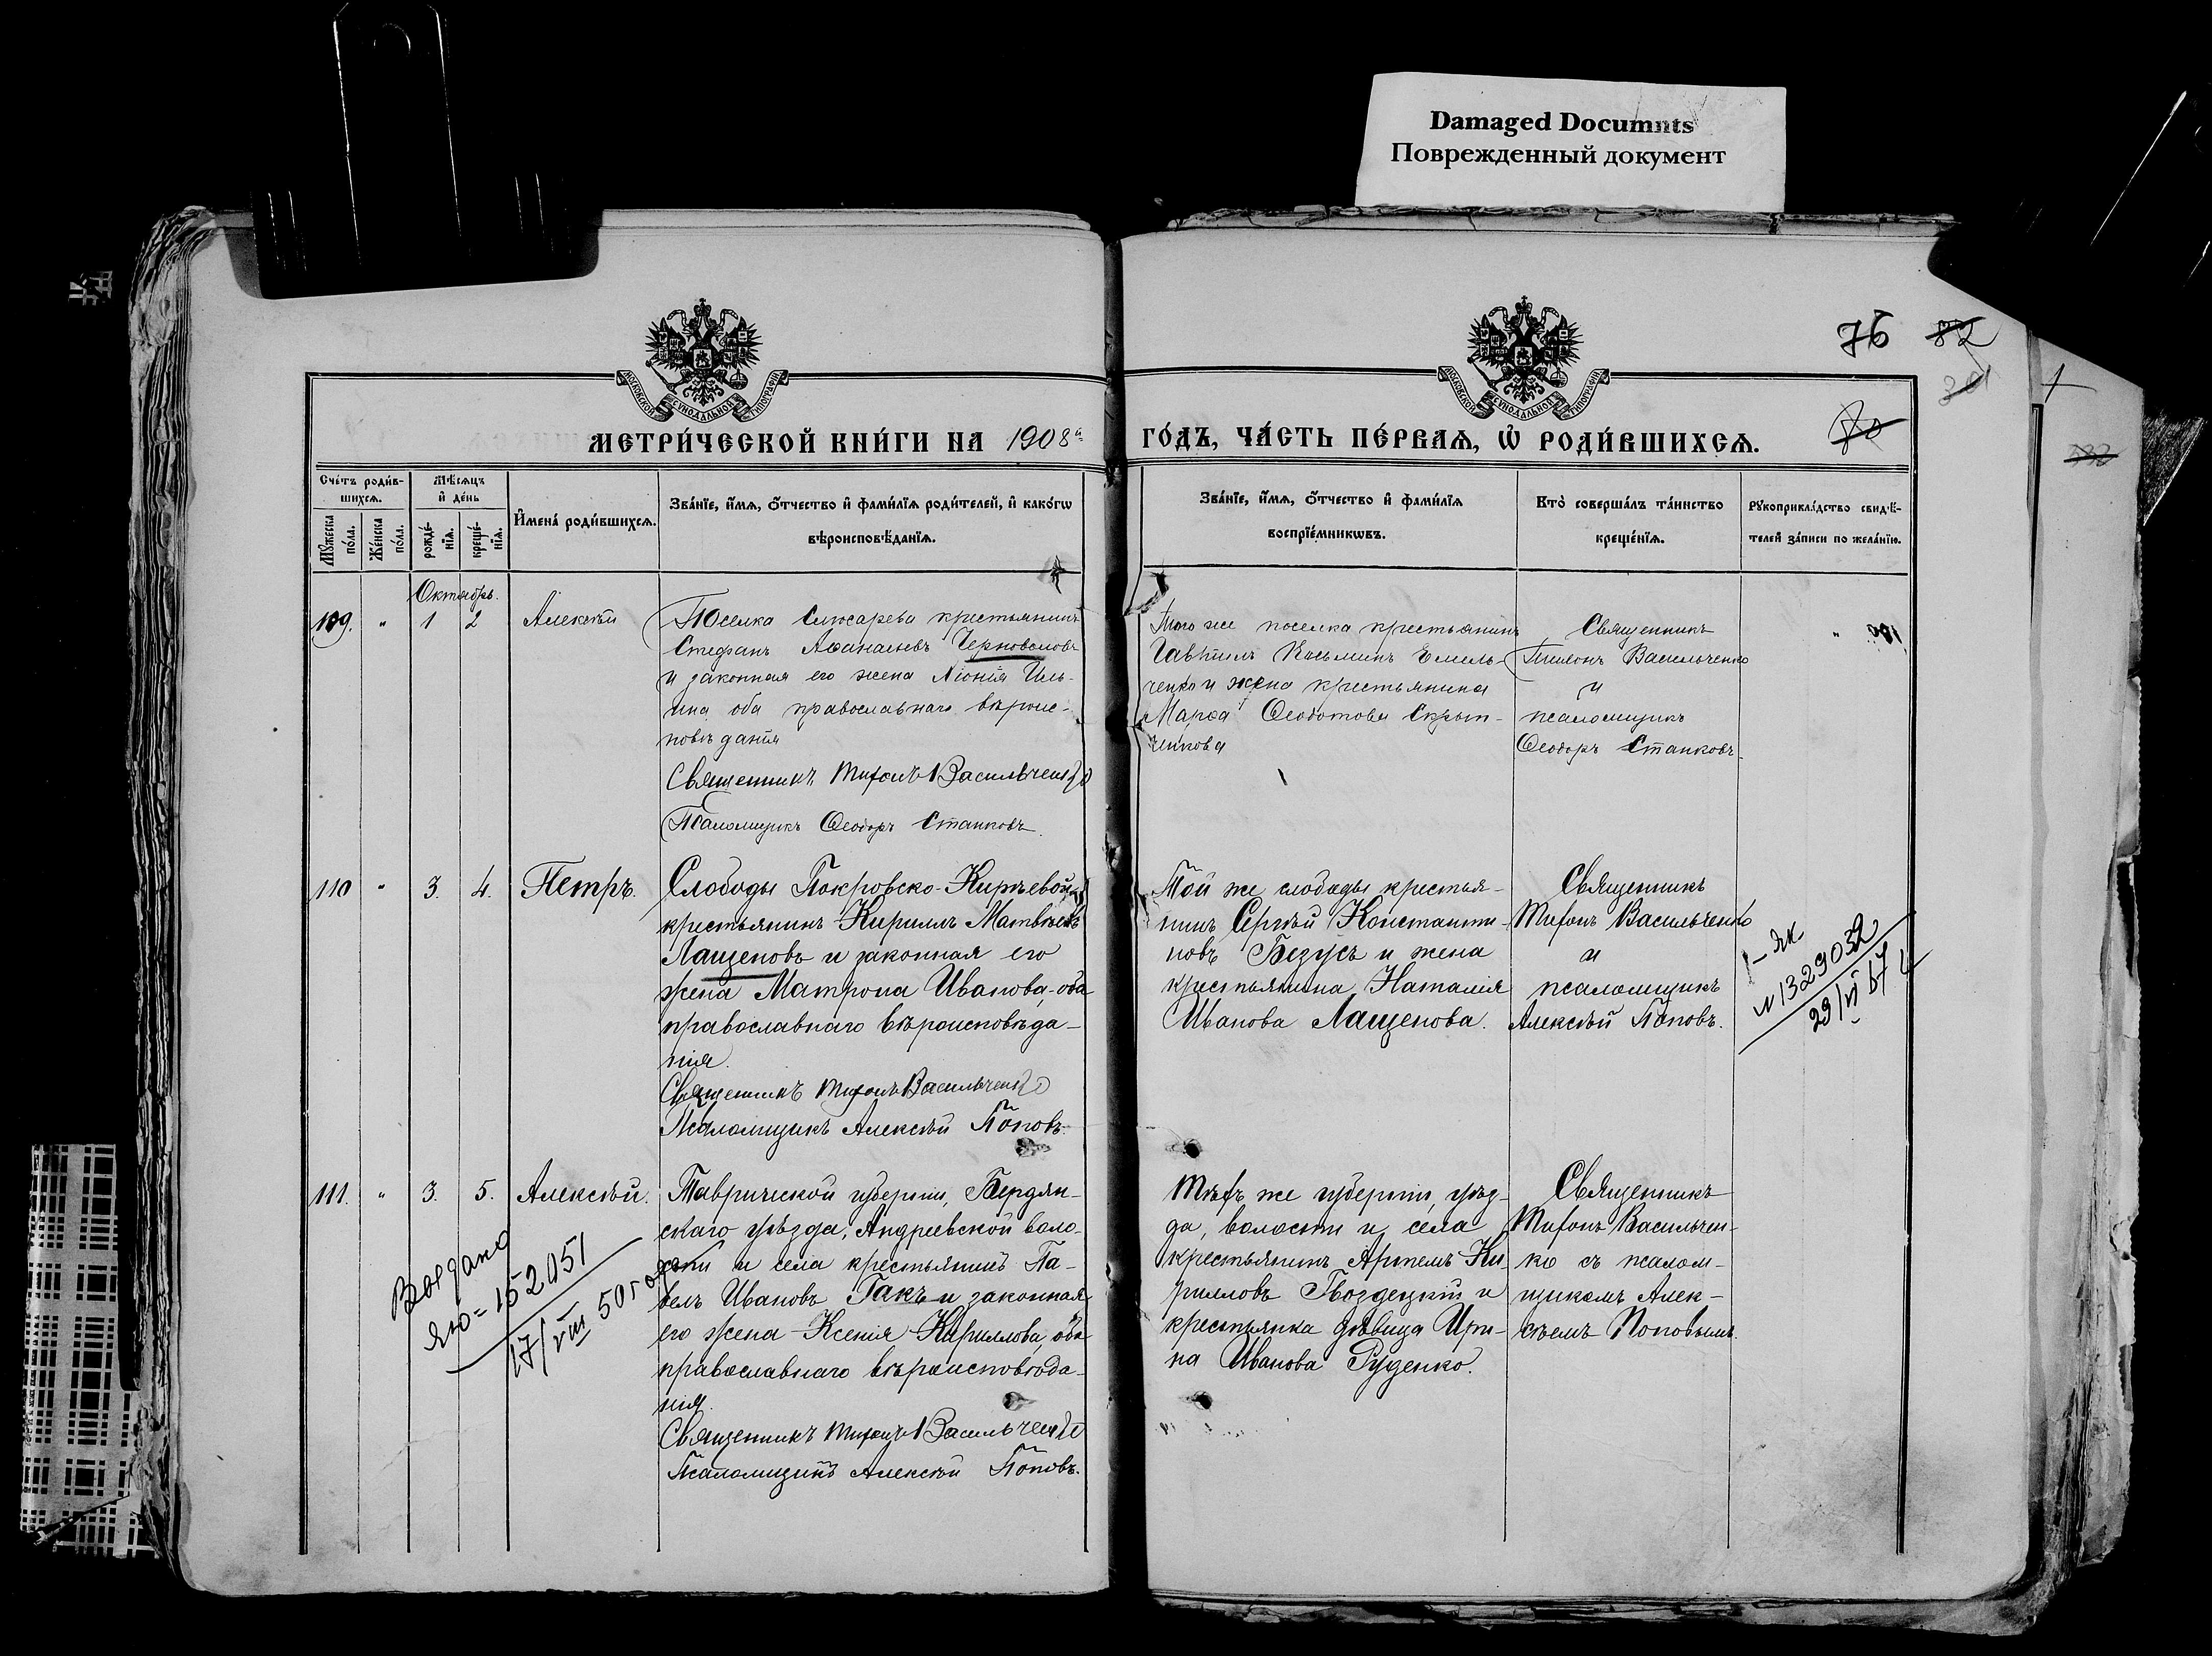 Damaged Documnts
Поврежденный документ
МОСКОВСКОЙ СѴНОДАЛЬНОЙ ТИПОГРАФІИ
МОСКОВСКОЙ СѴНОДАЛЬНОЙ ТИПОГРАФІИ
76 82
МЕТРИ́ЧЕСКОЙ КНИ́ГИ НА 1908й
ГО́ДЪ, ЧА́СТЬ ПЕ́РВАѦ, Ѡ҆ РОДИ́ВШИХСѦ.
Сче́тъ роди́в-
шихсѧ.
Мꙋ́жеска по́ла.
Же́нска по́ла.
Мѣ́сѧцъ
и҆ де́нь
рожде́-
нїѧ.
креще́-
нїѧ.
И҆мена̀ роди́вшихсѧ.
Зва́нїе, и҆́мѧ, ѻ҆́тчество и҆ фами́лїѧ роди́телей, и҆ како́гѡ
вѣроисповѣ́данїѧ.
Зва́нїе, и҆́мѧ, ѻ҆́тчество и҆ фами́лїѧ
воспрїе́мникѡвъ.
Кто̀ соверша́лъ та́инство
креще́нїѧ.
Рꙋкоприкла́дство свидѣ́-
телей за́писи по жела́нїю.
Октябрь.
109. " 1 2 Алексѣй
Поселка Слюсарева крестьянинъ
Стефанъ Аѳанасіевъ Черноволовъ
и законная его жена Иль-
ина оба православнаго вѣроис-
повѣданія
Священникъ Тихонъ Васильченко
Псаломщикъ Ѳеодоръ Станковъ.
Того же поселка крестьянинъ
Гавріилъ Косьминъ Емель-
ченко и жена крестьянина
Марѳа Ѳеодотова Скрып-
никова
Священникъ
Тихонъ Васильченко
и
псаломщикъ
Ѳеодоръ Станковъ.
110 " 3. 4. Петръ.
Слободы Покровско-Кирѣевой
крестьянинъ Кириллъ Матвѣевъ
Лащеновъ и законная его
жена Матрона Иванова, оба
православнаго вѣроисповѣда-
нія.
Священникъ Тихонъ Васильченко
Псаломщикъ Алексѣй Поповъ.
Той же слободы крестья-
нинъ Сергѣй Константи-
новъ Безусъ и жена
крестьянина Наталія
Иванова Лащенова.
Священникъ
Тихонъ Васильченко
и
псаломщикъ
Алексѣй Поповъ.
1-як
N1329032
29/VI 67
111. " 3. 5. Алексѣй.
Таврической губерніи, Бердян-
скаго уѣзда, Андреевской воло-
сти и села крестьянинъ Па-
велъ Ивановъ Гакъ и законная
его жена Ксенія Кириллова, оба
православнаго вѣроисповѣда-
нія.
Священникъ Тихонъ Васильченко
Псаломщикъ Алексѣй Поповъ.
яю=152051
17/VIII 50год
Тѣхъ же губерніи, уѣз-
да, волости и села
крестьянинъ Артемъ Ки-
рилловъ Гвоздецкій и
крестьянка дѣвица Ири-
на Иванова Руденко.
Священникъ
Тихонъ Васильчен-
ко съ псалом-
щикомъ Алек-
сѣемъ Поповымъ.